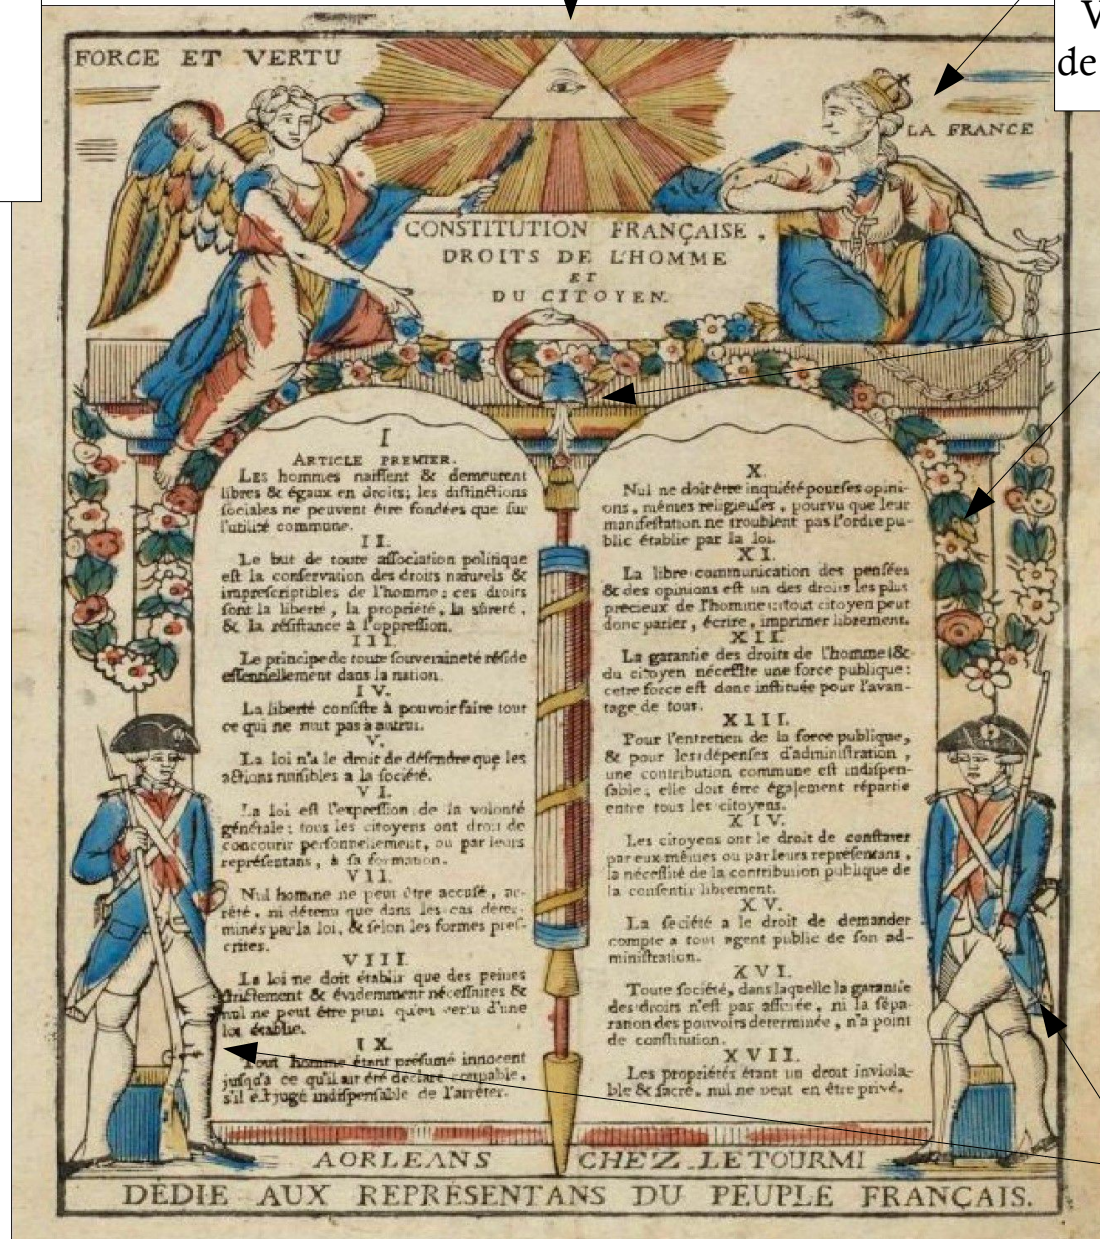 V
de
FORCE ET VERTU
LA FRANCE
CONSTITUTION FRANÇAISE.
DROITS DE L'HOMME
ET
DU CITOYEN.
I
ARTICLE PREMIER.
Les hommes naiſſent & demeurent
libres & égaux en droits; les diſtinctions
ſociales ne peuvent être fondées que ſur
l'utilité commune.
II.
Le but de toute aſſociation politique
eſt la conſervation des droits naturels &
impreſcriptibles de l'homme; ces droits
ſont la liberté, la propriété, la sûreté,
& la réſiſtance à l'oppreſſion.
III.
Le principe de toute ſouveraineté réſide
eſſentiellement dans la nation.
IV.
La liberté conſiſte à pouvoir faire tout
ce qui ne nuit pas à autrui.
V.
La loi n'a le droit de défendre que les
actions nuiſibles a la ſociété.
VI.
La loi eſt l'expreſſion de la volonté
générale; tous les citoyens ont droit de
concourir perſonnellement, ou par leurs
repréſentans, à ſa formation.
VII.
Nul homme ne peut être accuſé, ar-
rêté, ni détenu que dans les cas déter-
minés par la loi, & ſelon les formes preſ-
crites.
VIII.
La loi ne doit établir que des peines
ſtrictement & évidemment néceſſaires &
nul ne peut être puni qu'en vertu d'une
loi établie.
IX.
Tout homme étant préſumé innocent
juſqu'à ce qu'il ait été déclaré coupable,
s'il eſt jugé indiſpenſable de l'arrêter.
X.
Nul ne doit être inquiété pour ſes opini-
ons, mêmes religieuſes, pourvu que leur
manifeſtation ne troublent pas l'ordre pu-
blic établie par la loi.
XI.
La libre communication des penſées
& des opinions eſt un des droits les plus
précieux de l'homme: tout citoyen peut
donc parler, écrire, imprimer librement.
XII.
La garantie des droits de l'homme &
du citoyen néceſſite une force publique:
cette force eſt donc inſtituée pour l'avan-
tage de tous.
XIII.
Pour l'entretien de la force publique,
& pour les dépenſes d'adminiſtration,
une contribution commune eſt indiſpen-
ſable; elle doit être également répartie
entre tous les citoyens.
XIV.
Les citoyens ont le droit de conſtater
par eux-mêmes ou par leurs repréſentans,
la néceſſité de la contribution publique de
la conſentir librement.
XV.
La ſociété a le droit de demander
compte a tout agent public de ſon ad-
miniſtration.
XVI.
Toute ſociété, dans laquelle la garantie
des droits n'eſt pas aſſurée, ni la ſépa-
ration des pouvoirs determinée, n'a point
de conſtitution.
XVII.
Les propriétés étant un droit inviola-
ble & ſacré, nul ne peut en être privé.
A ORLEANS CHEZ LETOURMI
DÉDIE AUX REPRÉSENTANS DU PEUPLE FRANÇAIS.